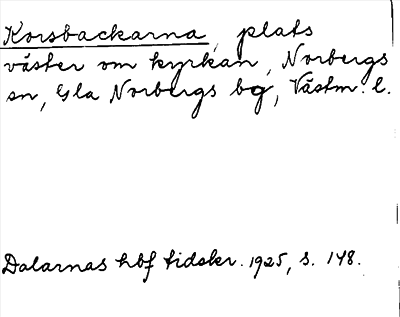 Korsbackarna, plats
väster om kyrkan, Norbergs
sn, Gla Norbergs bg, Västm. l.
Dalarnas hbf tidskr. 1925, s. 148.